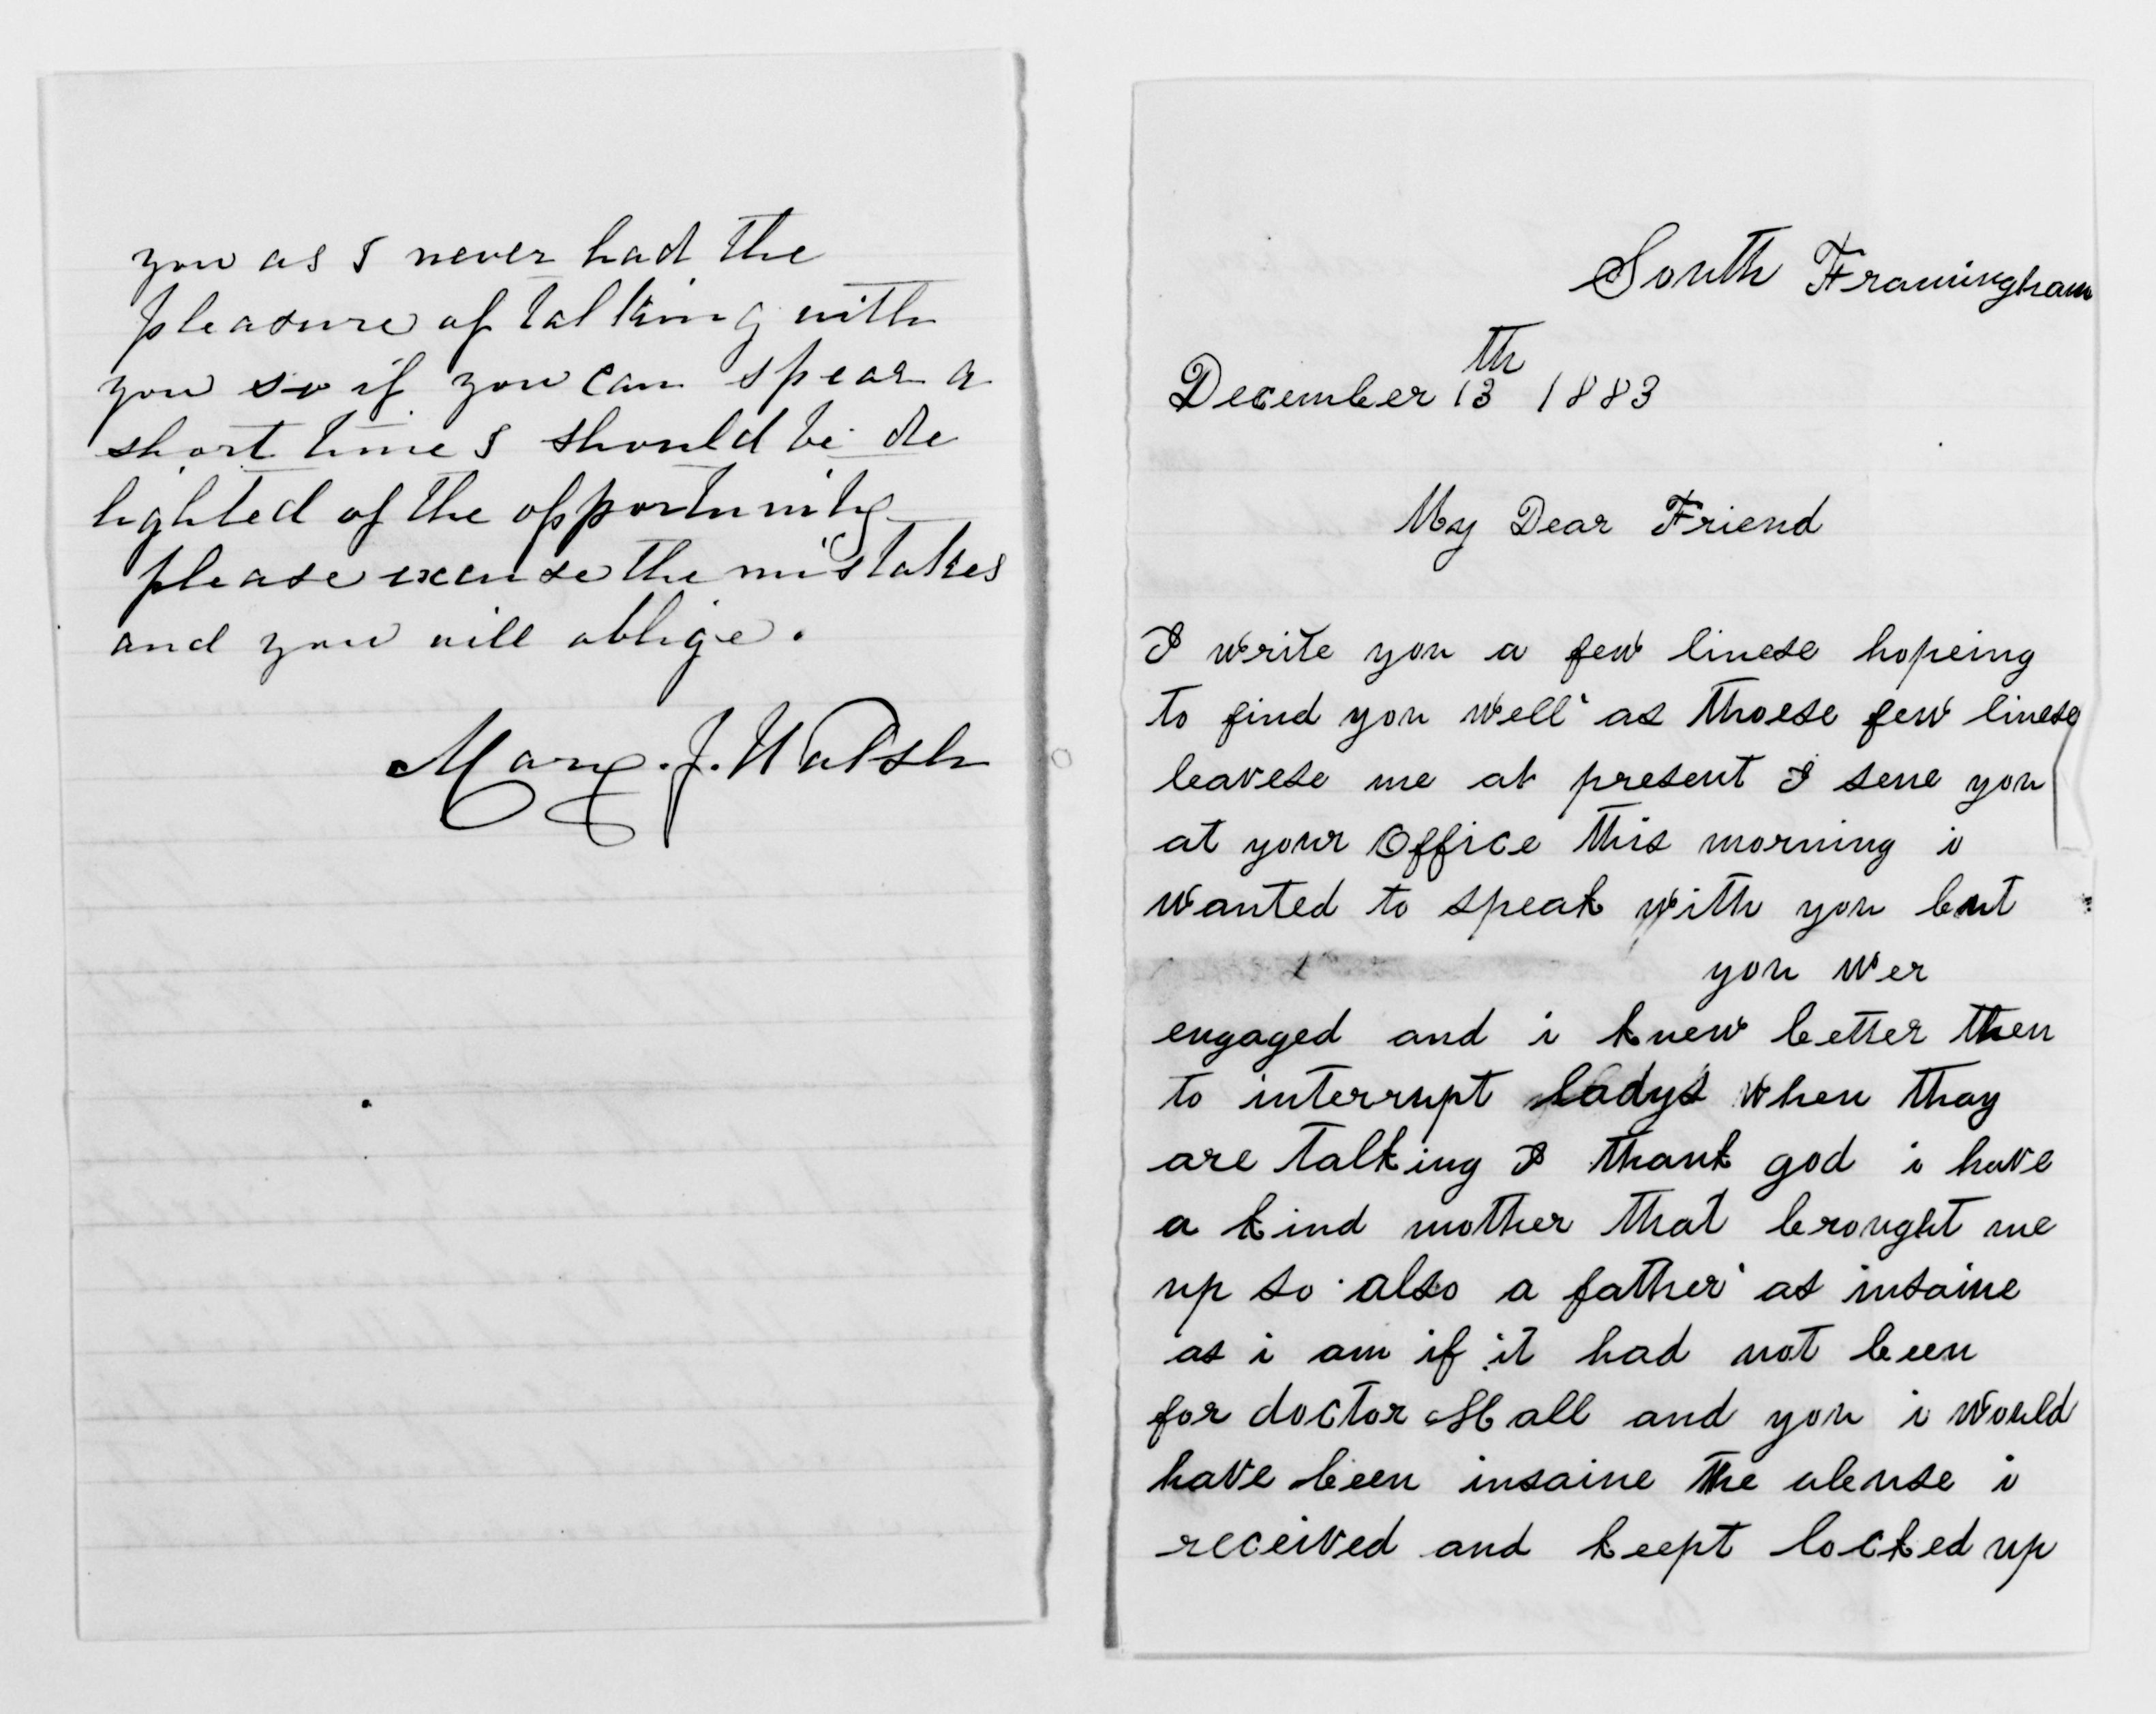 you as I never had the
pleasure of talking with
you so if you can spear a
short time I should be de
lighted of the opportunity
please excuse the mistakes
and you will oblige.
Mary. J. Walsh
South Framingham
December 13th 1883
My Dear Friend
I write you a few linese hopeing
to find you well as thoese few linese
leavese me at present I sene you
at your Office this morning i
wanted to speak with you but
you wer
engaged and i knew better then
to interrupt ladys when thay
are talking I thank god i have
a kind mother that brought me
up so also a father as insaine
as i am if it had not been
for doctor Hall and you i would
have been insaine the abuse i
received and keept locked up